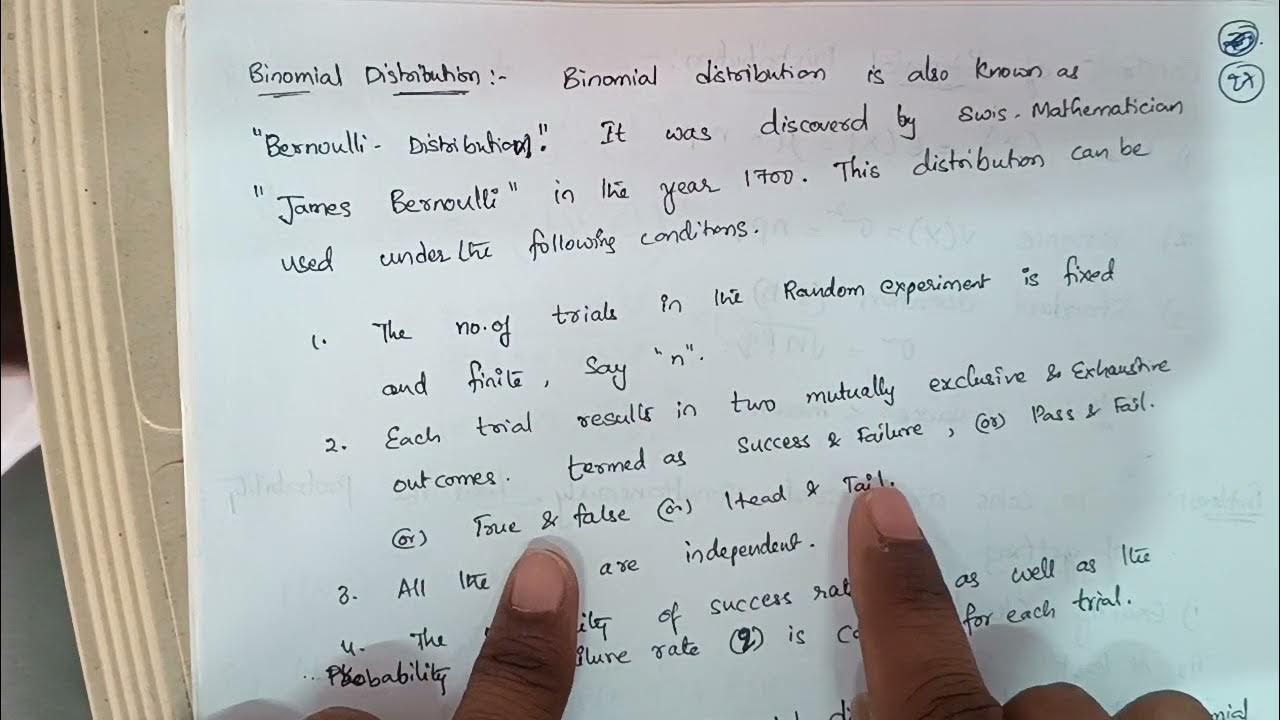 Binomial Distribution :- Binomial distribution is also known as
"Bernoulli - Distribution". It was discoverd by swis. Mathematician
"James Bernoulli" in the year 1700. This distribution can be
used under the following conditions.
1. The no. of trials in the Random experiment is fixed
and finite, say "n".
2. Each trial results in two mutually exclusive & Exhaustive
outcomes. termed as success & Failure, (or) Pass & Fail.
(or) True & false (or) Head & Tail.
3. All the are independent.
4. The of success as well as the
Probability rate (q) is for each trial.